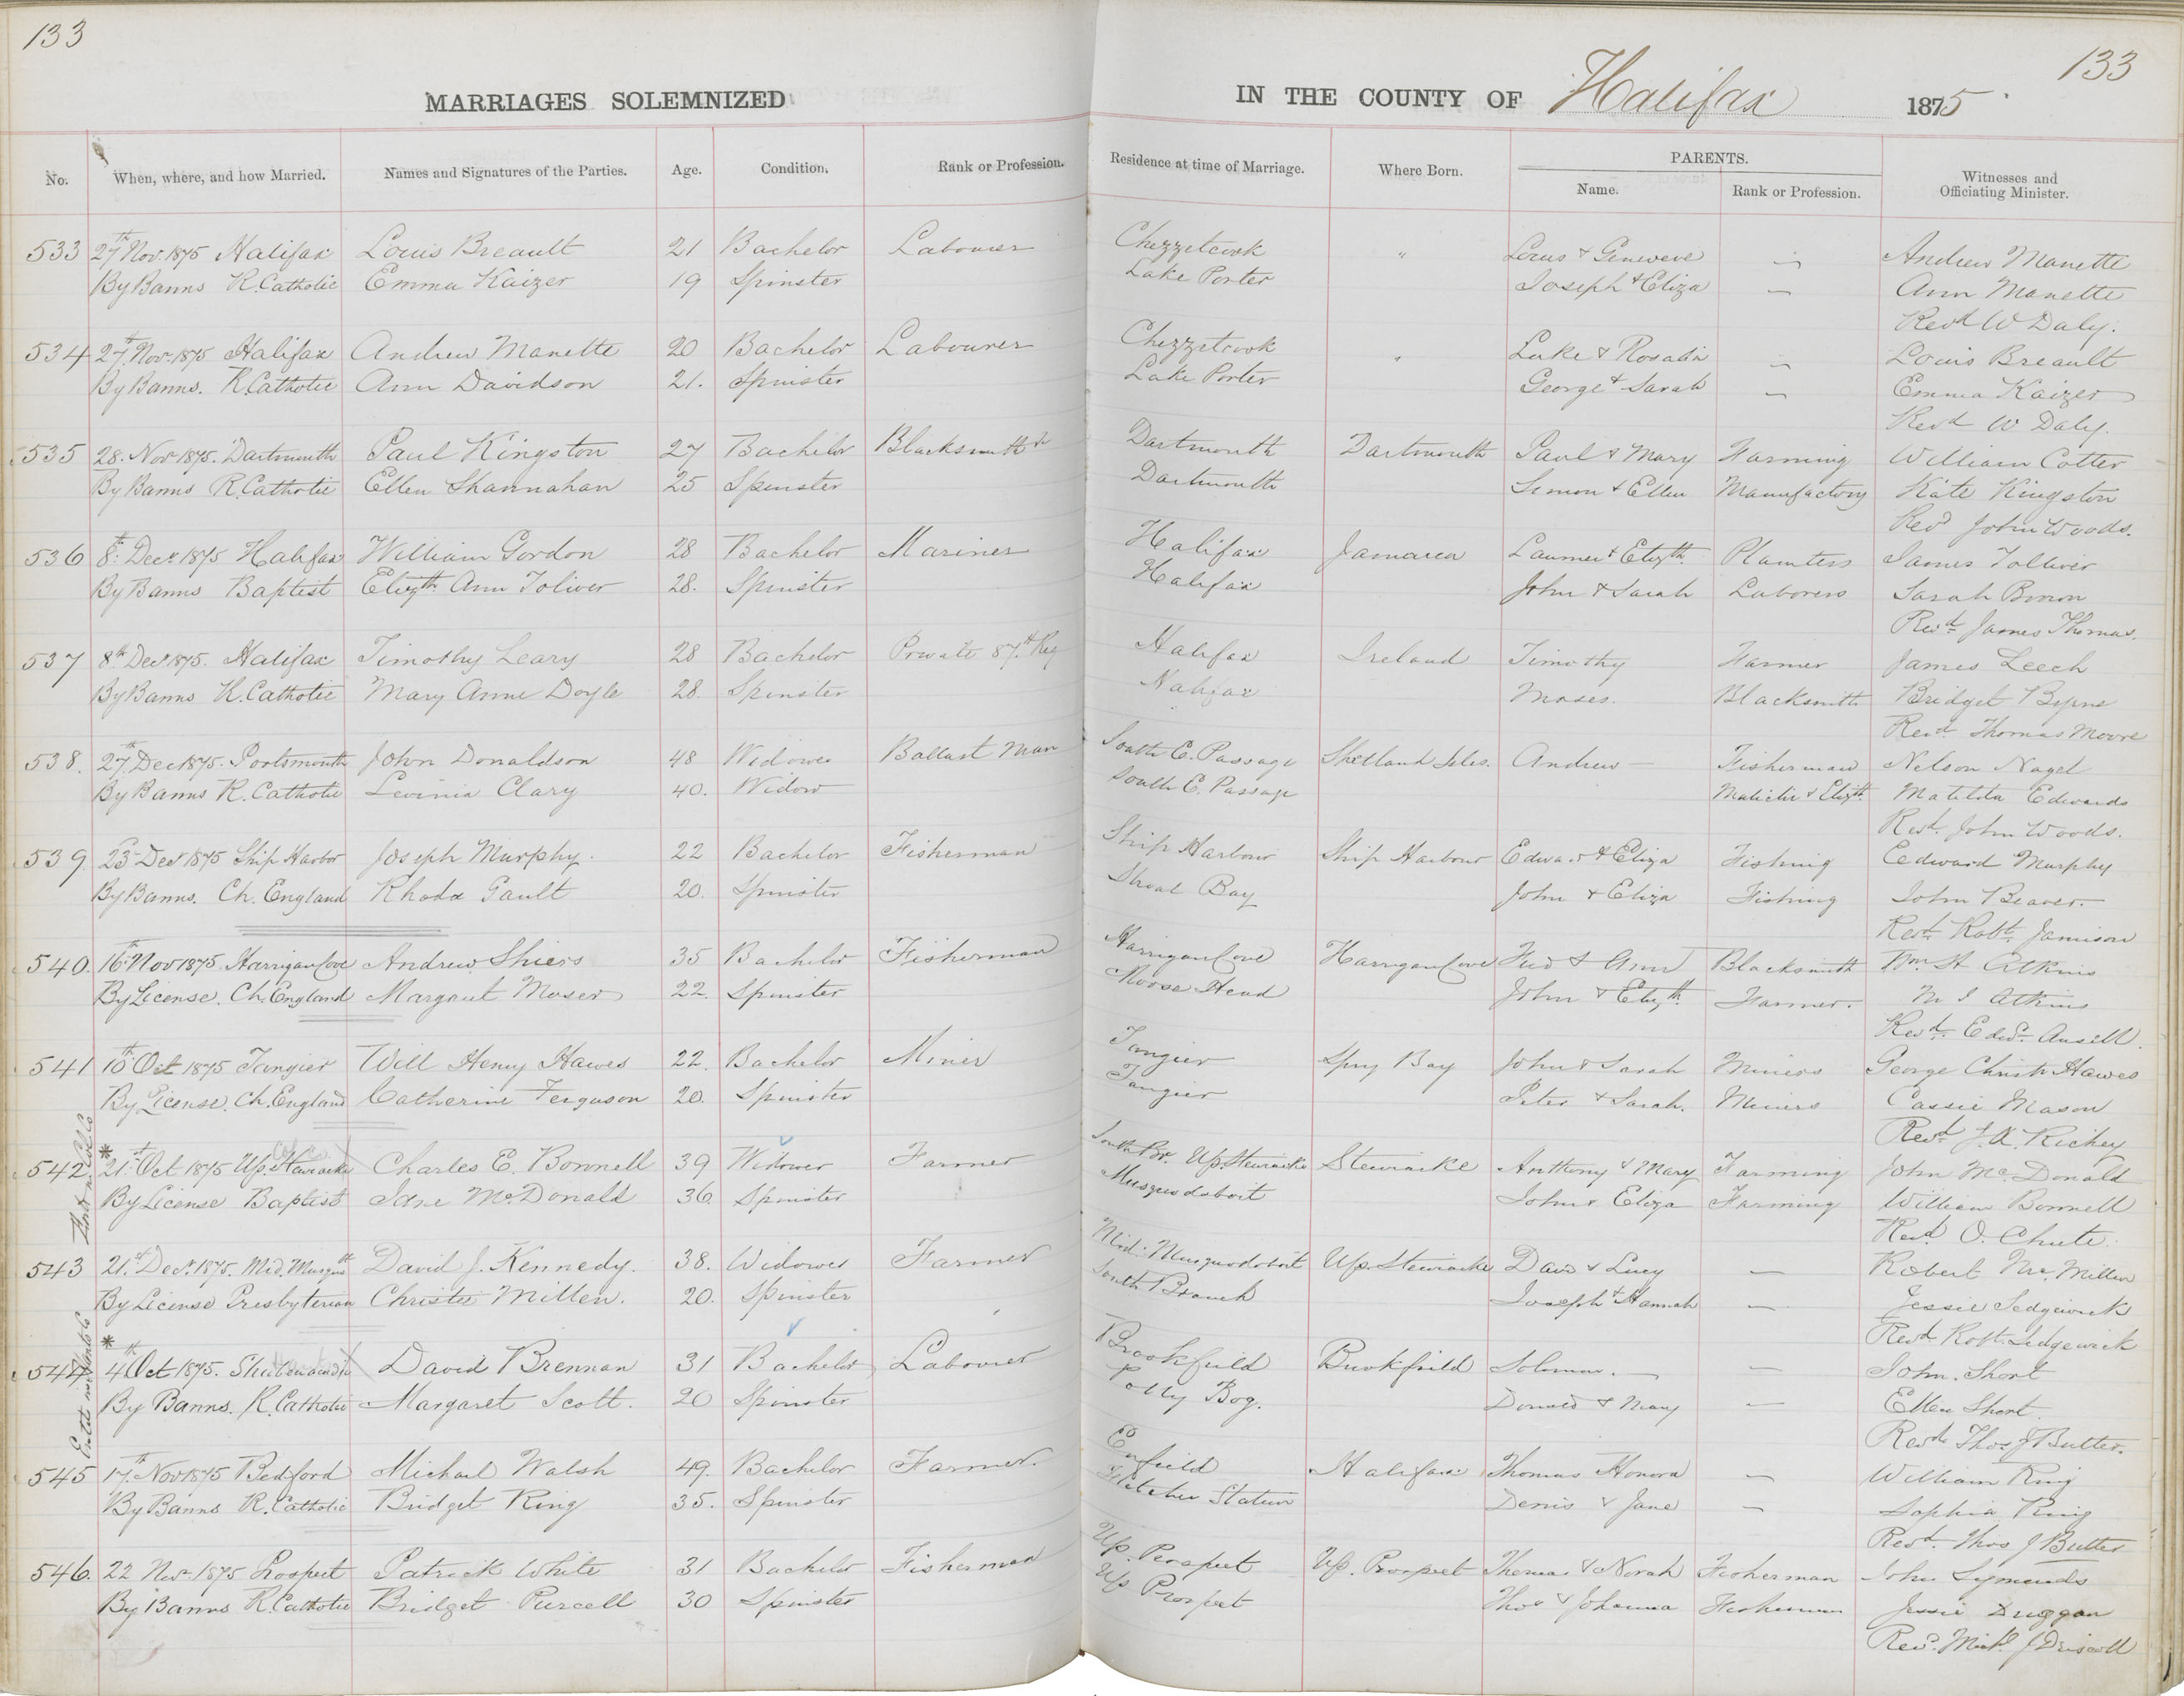 133
133
MARRIAGES SOLEMNIZED IN THE COUNTY OF Halifax 1875
No. When, where, and how Married. Names and Signatures of the Parties. Age. Condition. Rank or Profession. Residence at time of Marriage. Where Born. PARENTS. Name. Rank or Profession. Witnesses and Officiating Minister.
533 27th Nov. 1875 Halifax Louis Breault 21 Bachelor Labourer Chezzetcook " Louis & Genevieve — Andrew Manette
By Banns R. Catholic Emma Kaizer 19 Spinster Lake Porter Joseph & Eliza — Ann Manette
Revd W Daly.
534 27th Nov. 1875 Halifax Andrew Manette 20 Bachelor Labourer Chezzetcook " Luke & Rosalie — Louis Breault
By Banns. R. Catholic Ann Davidson 21. Spinster Lake Porter George & Sarah — Emma Kaizer
Revd W Daly.
535 28. Nov 1875. Dartmouth Paul Kingston 27 Bachelor Blacksmith Dartmouth Dartmouth Paul & Mary Farming William Cotter
By Banns R. Catholic Ellen Shannahan 25 Spinster Dartmouth Simon & Ellen Manufactory Kate Kingston
Revd John Woods.
536 8th Decr 1875 Halifax William Gordon 28 Bachelor Mariner Halifax Jamaica & Elizth Planters James Tolliver
By Banns Baptist Elizth Ann Toliver 28. Spinster Halifax John & Sarah Laborers Sarah
Revd James Thomas.
537 8th Decr 1875. Halifax Timothy Leary 28 Bachelor Private 87th Reg Halifax Ireland Timothy Farmer James Leech
By Banns R. Catholic Mary Anne Doyle 28. Spinster Halifax Moses. Blacksmith Bridget Byrne
Revd Thomas Moore
538. 27th Dec 1875. Portsmouth John Donaldson 48 Widower Ballast Man South E. Passage Shetland Isles. Andrew — Fisherman Nelson Nagel
By Banns R. Catholic Levinia Clary 40. Widow South E. Passage & Elizth Matilda Edwards
Revd. John Woods.
539 23d Decr 1875 Ship Harbor Joseph Murphy. 22 Bachelor Fisherman Ship Harbour Ship Harbour Edward & Eliza Fishing Edward Murphy
By Banns. Ch. England Rhoda Gault 20. Spinster Shoal Bay John & Eliza Fishing John Beaver.
Revd. Robt. Jamison
540. 16th Nov 1875 Harrigan Cove Andrew Shiers 35 Bachelor Fisherman Harrigan Cove Harrigan Cove & Ann Blacksmith Wm H Atkins
By License. Ch. England Margaret Moser 22. Spinster Moose Head John & Elizth Farmer. M J Atkins
Revd. Edwd. Ansell.
541 10th Oct 1875 Tangier Will Henry Hawes 22. Bachelor Miner Tangier Spry Bay John & Sarah Miners George Christr Hawes
By License. Ch. England Catherine Ferguson 20. Spinster Tangier Peter & Sarah. Miners Cassie Mason
Revd J. A. Richey
542 * 21st Oct 1875 Up. Stewiacke Charles E. Bonnell 39 Widower Farmer South Br. Up. Stewiacke Stewiacke Anthony & Mary Farming John McDonald
By License Baptist Jane McDonald 36. Spinster Musquodoboit John & Eliza Farming William Bonnell
Revd O. Chute.
543 21st Decr. 1875. Mid. Musqt David J. Kennedy. 38. Widower Farmer Mid. Musquodoboit Up. Stewiacke David & Lucy — Robert McMillen
By License Presbyterian Christie Millen. 20. Spinster South Branch Joseph & Hannah — Jessie Sedgewick
Revd Robt. Sedgewick
544 * 4th Oct 1875. Shubenacadie David Brennan 31 Bachelor Labourer Brookfield Brookfield Solomon. — John. Short
By Banns. R. Catholic Margaret Scott. 20 Spinster Polly Bog. Donald & Mary — Ellen Short.
Revd. Thos J Butler.
545 17th Nov 1875 Bedford Michael Walsh 49. Bachelor Farmer. Enfield Halifax Thomas Honora — William King
By Banns R. Catholic Bridget King 35. Spinster Fletcher Station Denis & Jane — Sophia King
Revd. Thos J Butler
546. 22 Nov. 1875 Prospect Patrick White 31 Bachelor Fisherman Up. Prospect Up. Prospect Thomas & Norah Fisherman John Symonds
By Banns R. Catholic Bridget Purcell 30 Spinster Up Prospect Thos & Johanna Fisherman Jessie Duggan
Revd. Michl J Driscoll